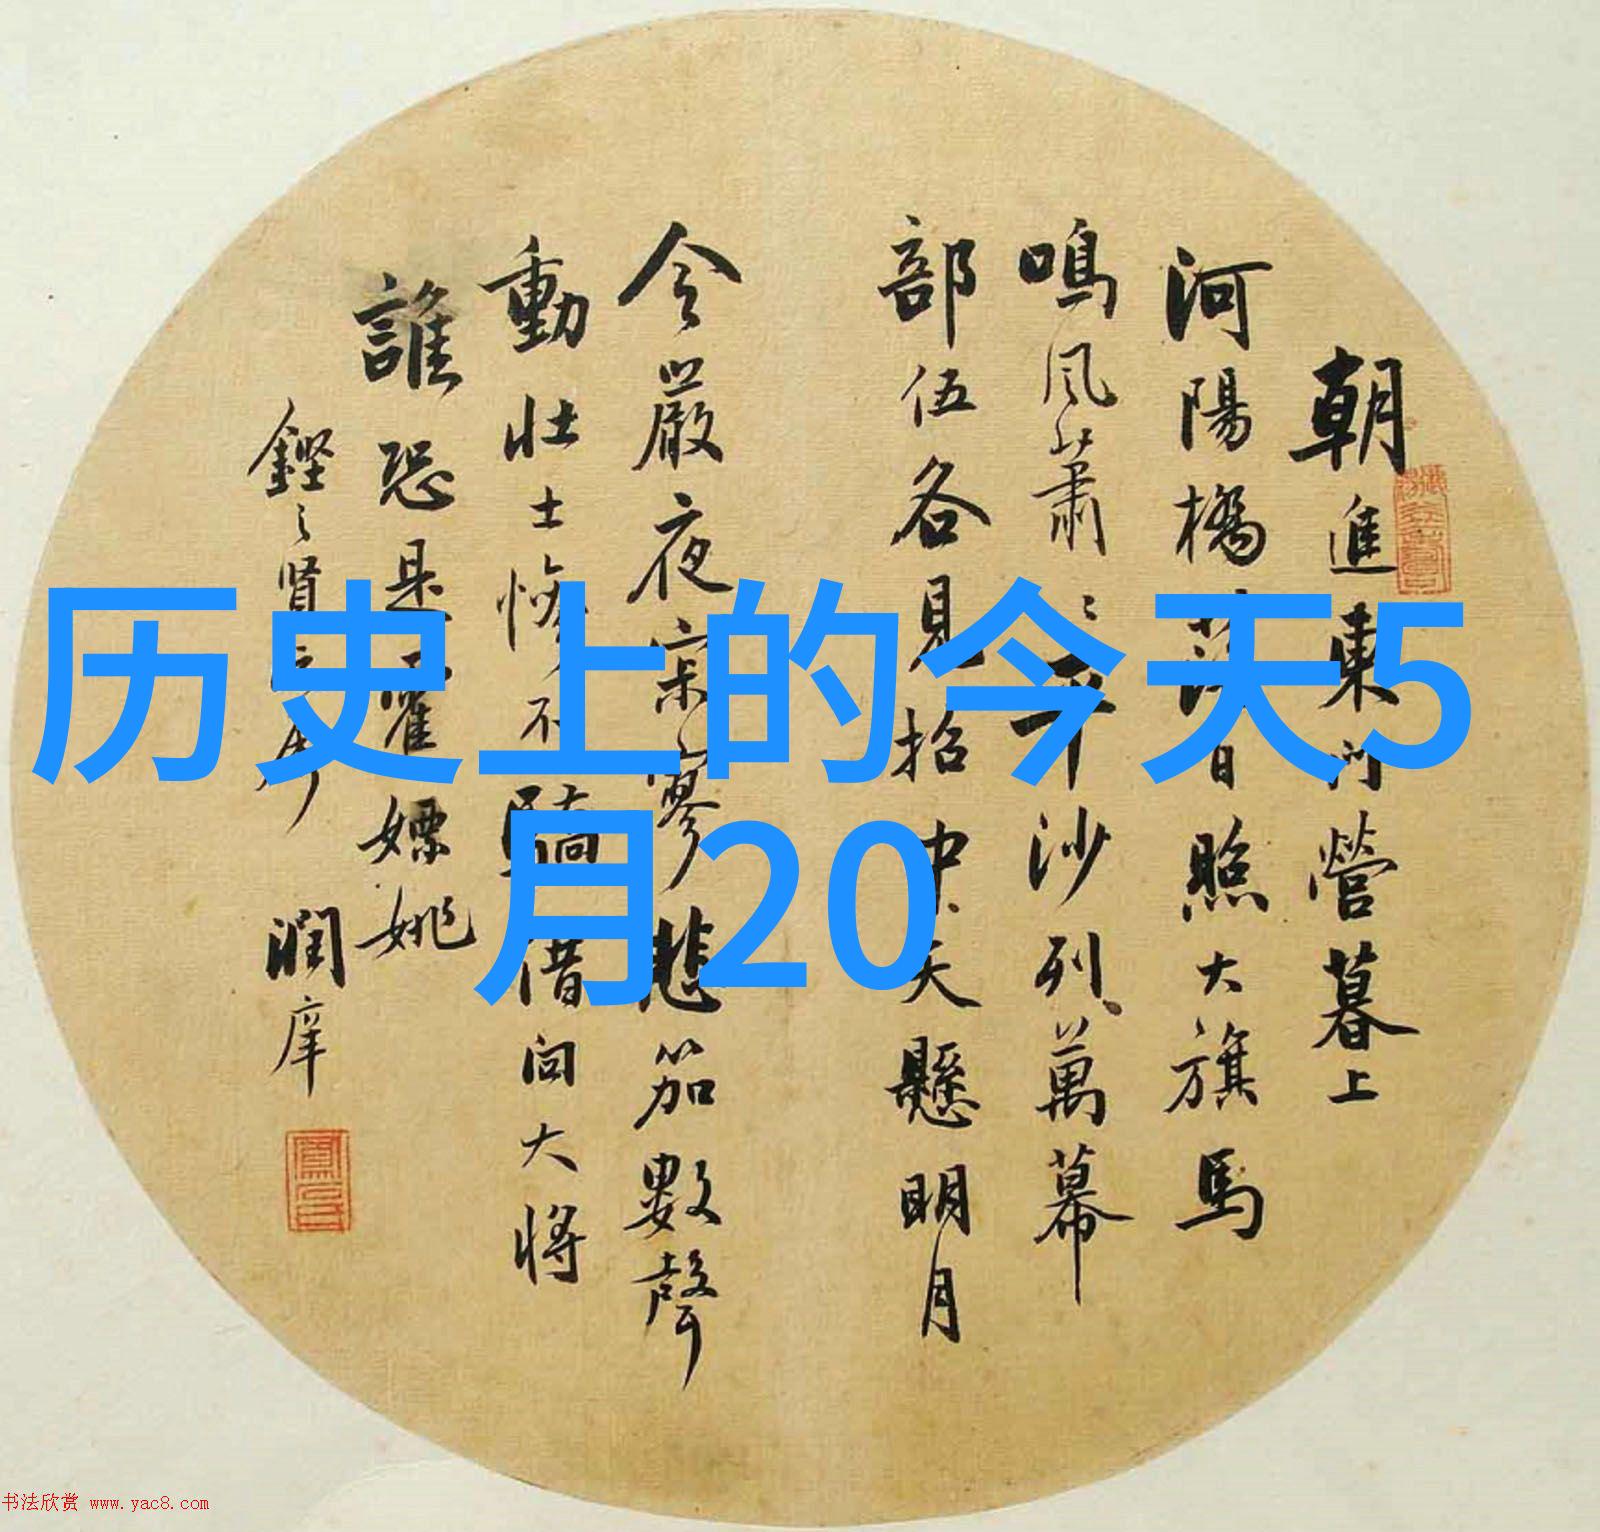 历史上的今天5
月20
朝進東門營暮上
河陽橋落日照大旗馬
鳴風蕭〻平沙列萬幕
部伍各見招中天懸明月
令嚴夜寂寥悲笳數聲
動壯士慘不驕借问大將
誰恐是霍嫖姚
鏗之賢
潤庠
书法欣赏 www.yac8.com